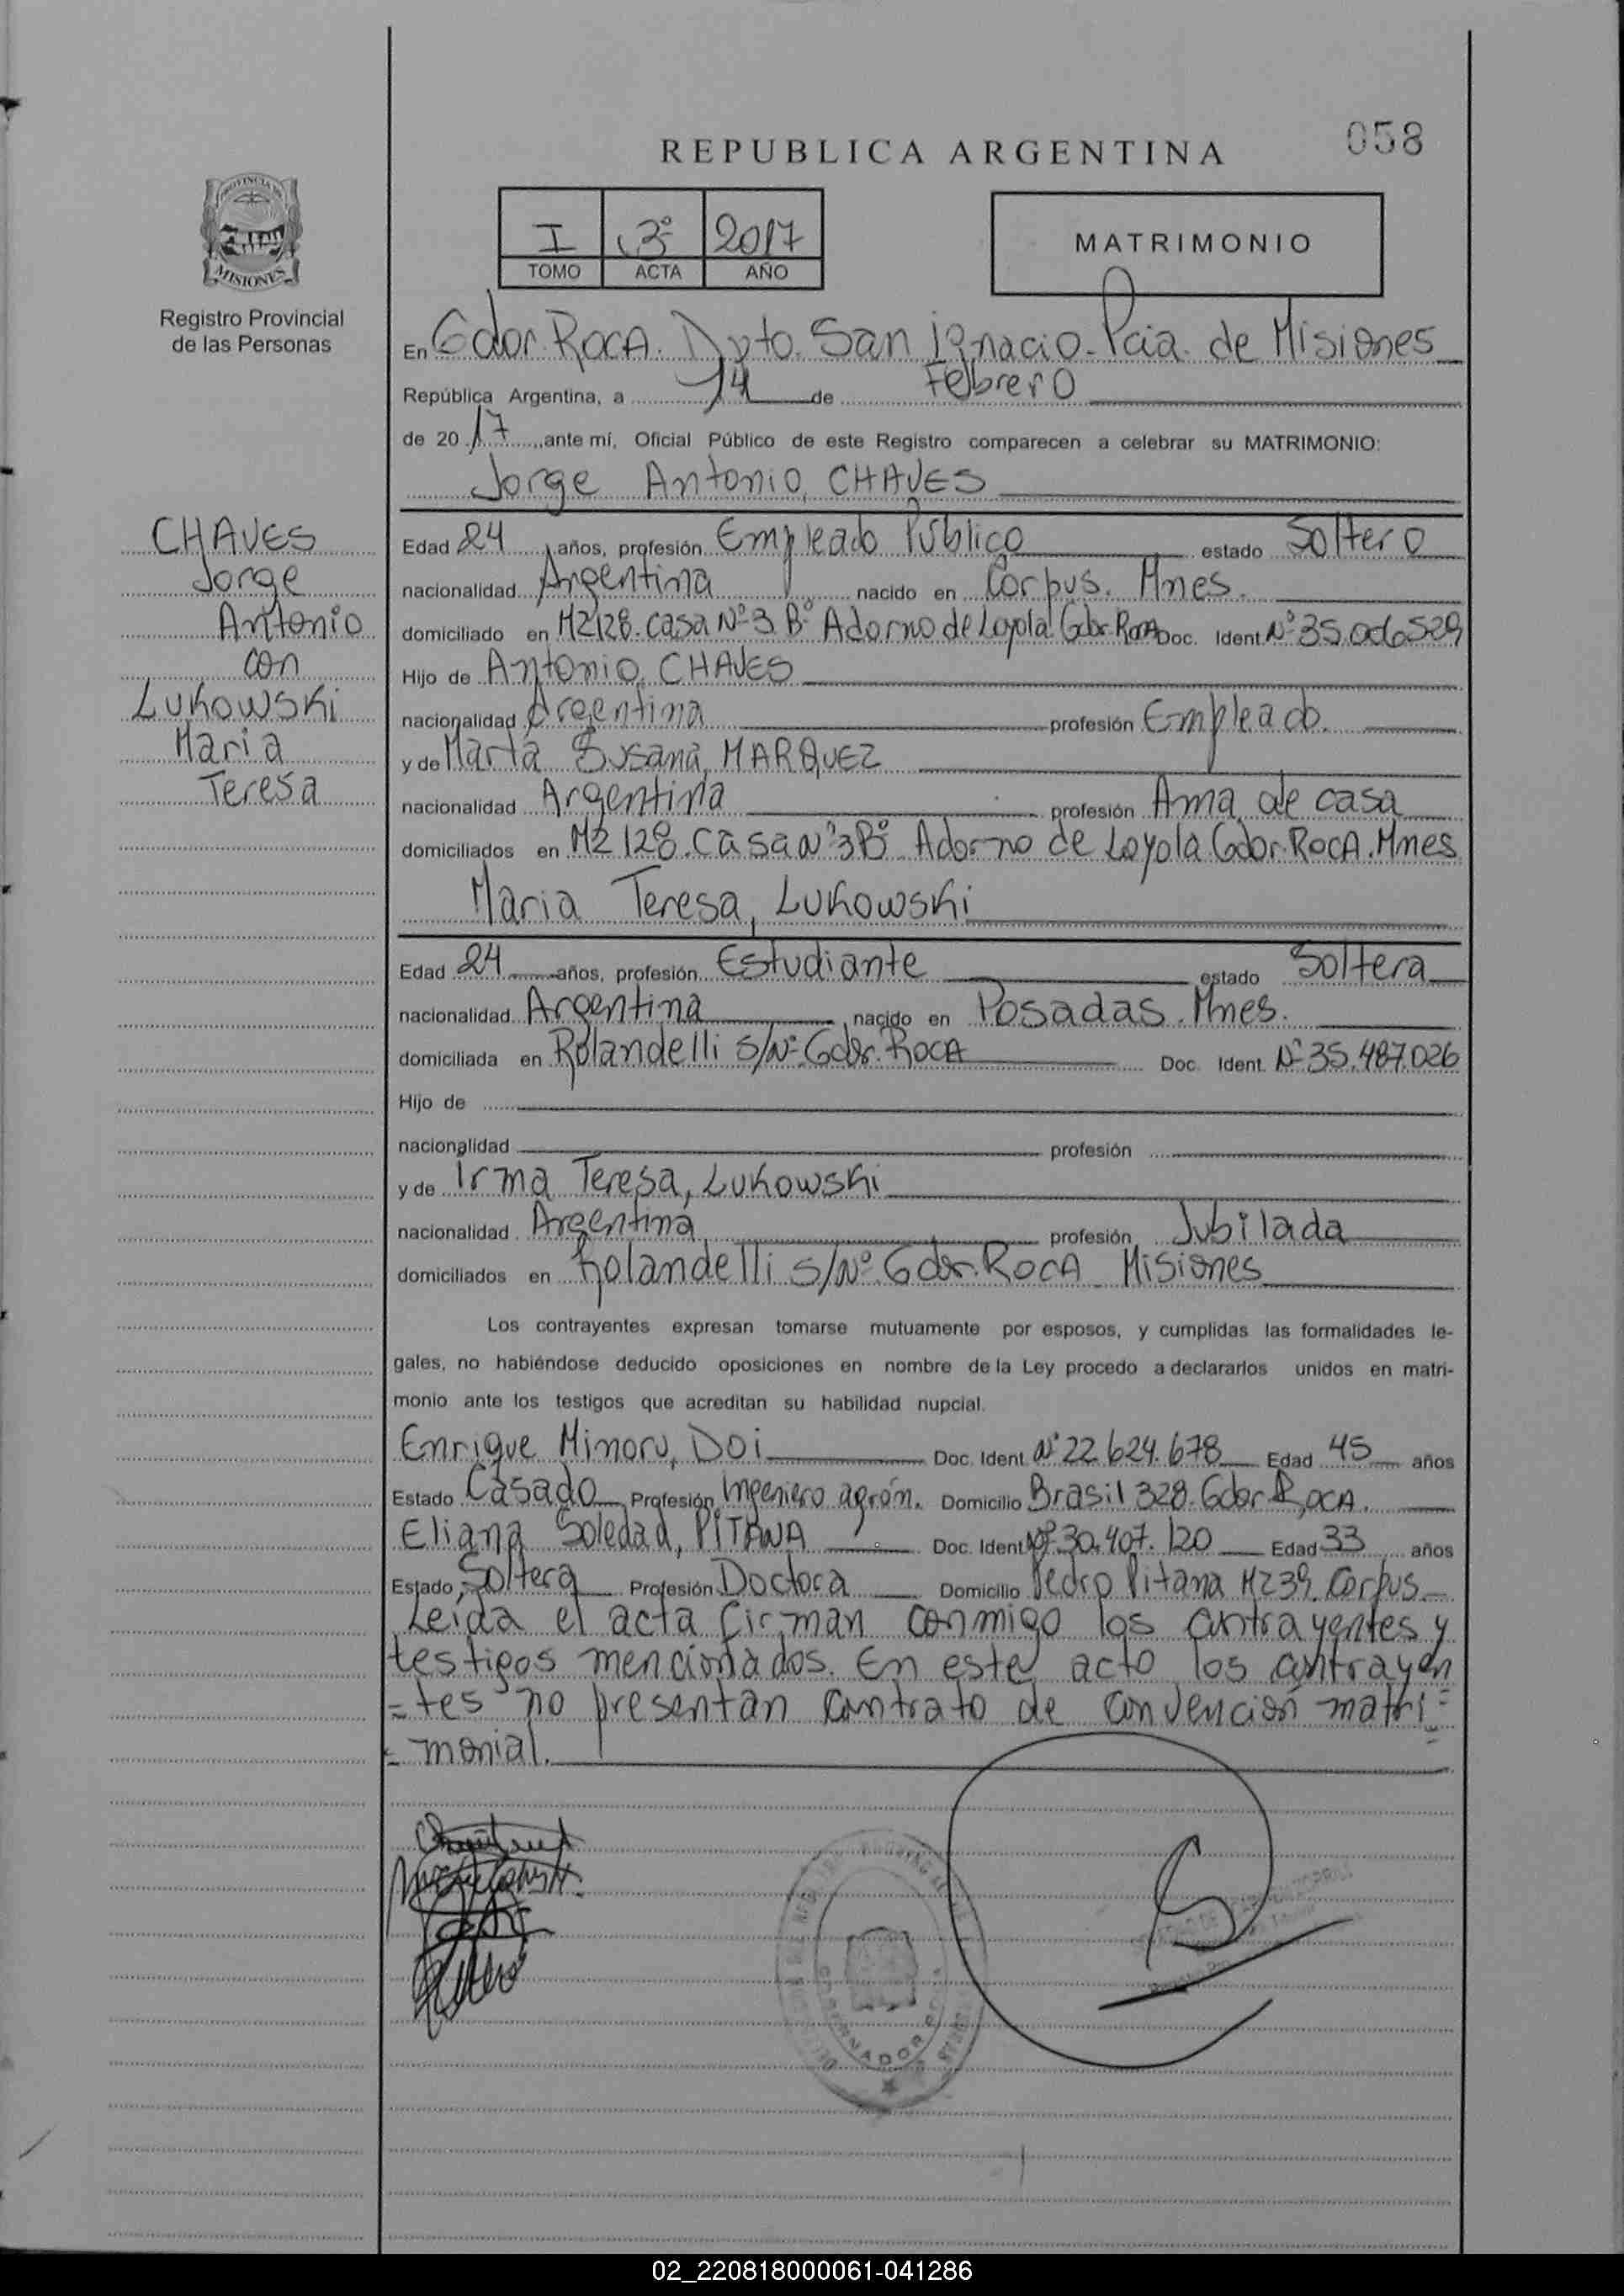 REPUBLICA ARGENTINA
058
PROVINCIA DE
MISIONES
Registro Provincial
de las Personas
I 3º 2017
TOMO ACTA AÑO
MATRIMONIO
En Gdor. Roca. Dpto. San Ignacio. Pcia. de Misiones
República Argentina, a 14 de Febrero
de 2017, ante mí, Oficial Público de este Registro comparecen a celebrar su MATRIMONIO:
Jorge Antonio, CHAVES
CHAVES
Jorge
Antonio
con
Lukowski
Maria
Teresa
Edad 24 años, profesión Empleado Público estado Soltero
nacionalidad Argentina nacido en Corpus. Mnes.
domiciliado en MZ128. Casa Nº 3 Bº Adorno de Loyola Gdor. Roca Doc. Ident. Nº 35.006.529
Hijo de Antonio, CHAVES
nacionalidad Argentina profesión Empleado.
y de Marta Susana, MARQUEZ
nacionalidad Argentina profesión Ama de casa
domiciliados en MZ 128. Casa Nº 3 Bº Adorno de Loyola Gdor. Roca. Mnes
Maria Teresa, Lukowski
Edad 24 años, profesión Estudiante estado Soltera
nacionalidad Argentina nacido en Posadas. Mnes.
domiciliada en Rolandelli S/Nº Gdor. Roca Doc. Ident. Nº 35.487.026
Hijo de
nacionalidad profesión
y de Irma Teresa, Lukowski
nacionalidad Argentina profesión Jubilada
domiciliados en Rolandelli S/Nº. Gdor. Roca Misiones
Los contrayentes expresan tomarse mutuamente por esposos, y cumplidas las formalidades le-
gales, no habiéndose deducido oposiciones en nombre de la Ley procedo a declararlos unidos en matri-
monio ante los testigos que acreditan su habilidad nupcial.
Enrique Minoru, Doi Doc. Ident. Nº 22.624.678 Edad 45 años
Estado Casado Profesión Ingeniero agrón. Domicilio Brasil 328. Gdor. Roca.
Eliana Soledad, PITANA Doc. Ident. Nº 30.407.120 Edad 33 años
Estado Soltera Profesión Doctora Domicilio Pedro Pitana MZ39. Corpus.
Leida el acta firman conmigo los contrayentes y
testigos mencionados. En este acto los contrayen
=tes no presentan contrato de convención matri=
=monial.
02_220818000061-041286